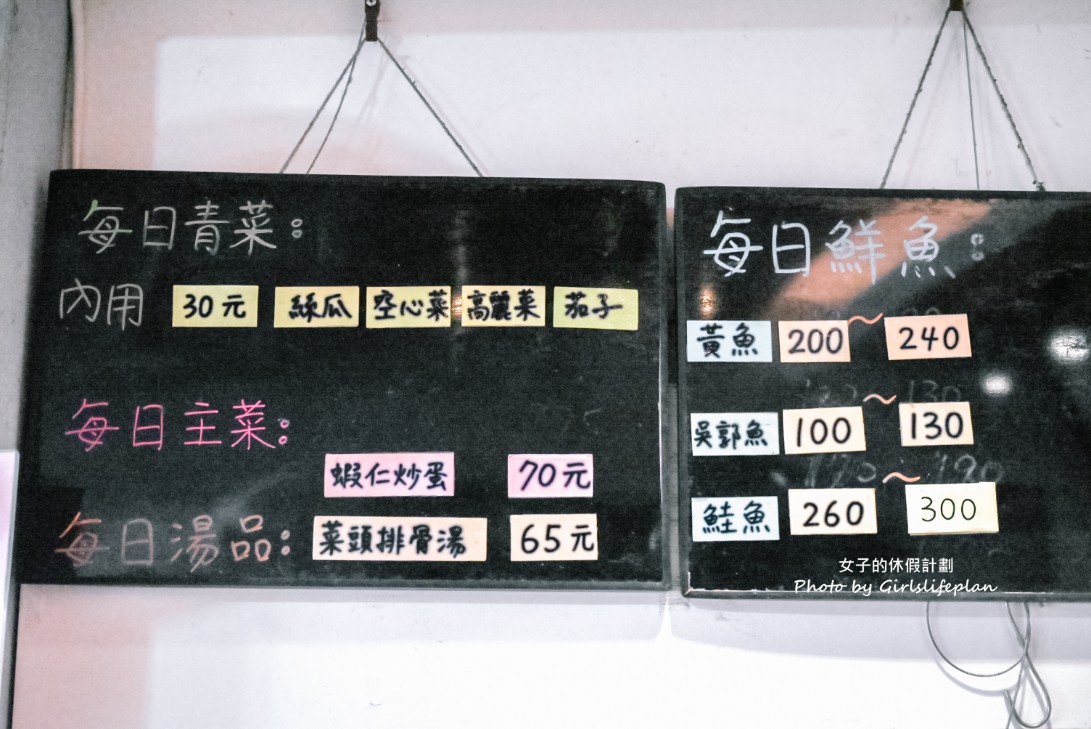 每日青菜:
內用 30元 絲瓜 空心菜 高麗菜 茄子
每日主菜:
蝦仁炒蛋 70元
每日湯品: 菜頭排骨湯 65元
每日鮮魚:
黃魚 200 ~ 240
吳郭魚 100 ~ 130
鮭魚 260 ~ 300
女子的休假計劃
Photo by Girlslifeplan